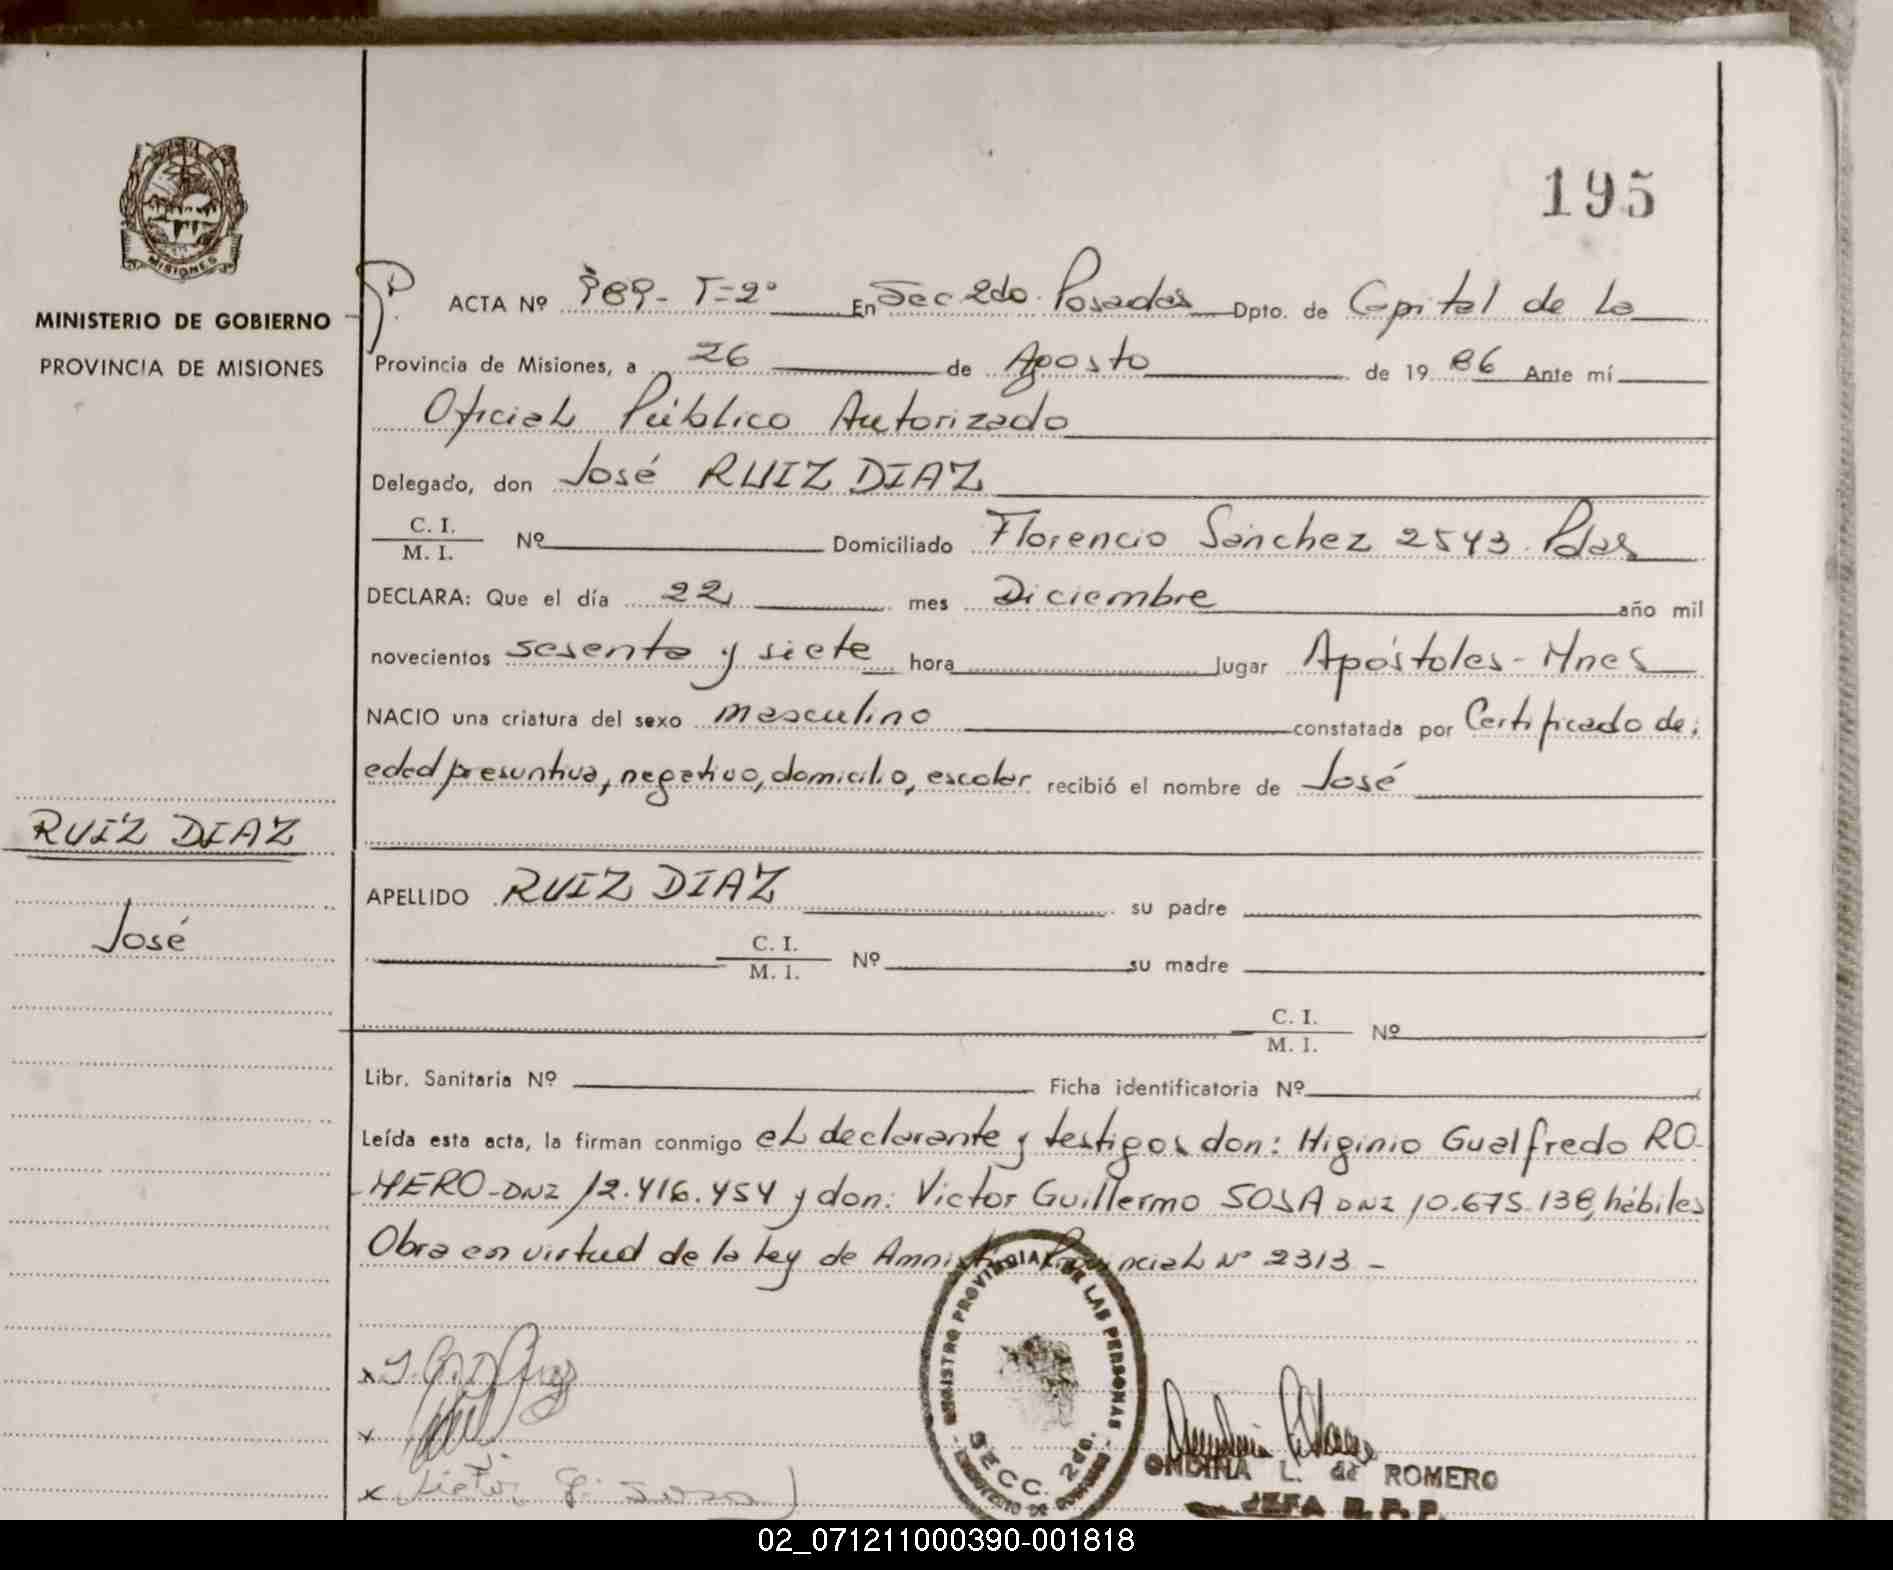 195
MISIONES
MINISTERIO DE GOBIERNO
PROVINCIA DE MISIONES
ACTA Nº 789- T=2° En Sec 2do. Posadas Dpto. de Capital de La
Provincia de Misiones, a 26 de Agosto de 1986 Ante mí
Oficial Público Autorizado
Delegado, don José RUIZ DIAZ
C. I.
M. I. Nº Domiciliado Florencio Sánchez 2543. Pdas
DECLARA: Que el día 22 mes Diciembre año mil
novecientos sesenta y siete hora lugar Apóstoles - Mnes
NACIO una criatura del sexo masculino constatada por Certificado de:
edad presuntiva, negativo, domicilio, escolar recibió el nombre de José
RUIZ DIAZ
José
APELLIDO RUIZ DIAZ su padre
C. I.
M. I. Nº su madre
C. I.
M. I. Nº
Libr. Sanitaria Nº Ficha identificatoria Nº
Leída esta acta, la firman conmigo el declarante y testigos don: Higinio Gualfredo RO-
MERO-DNI 12.416.454 y don: Victor Guillermo SOSA DNI 10.675.138, hábiles
Obra en virtud de la Ley de Amnistía Provincial Nº 2313 -
REGISTRO PROVINCIAL DE LAS PERSONAS
SECC. 2da.
Victor G. Sosa
ONDINA L. de ROMERO
JEFA R.P.P.
02_071211000390-001818